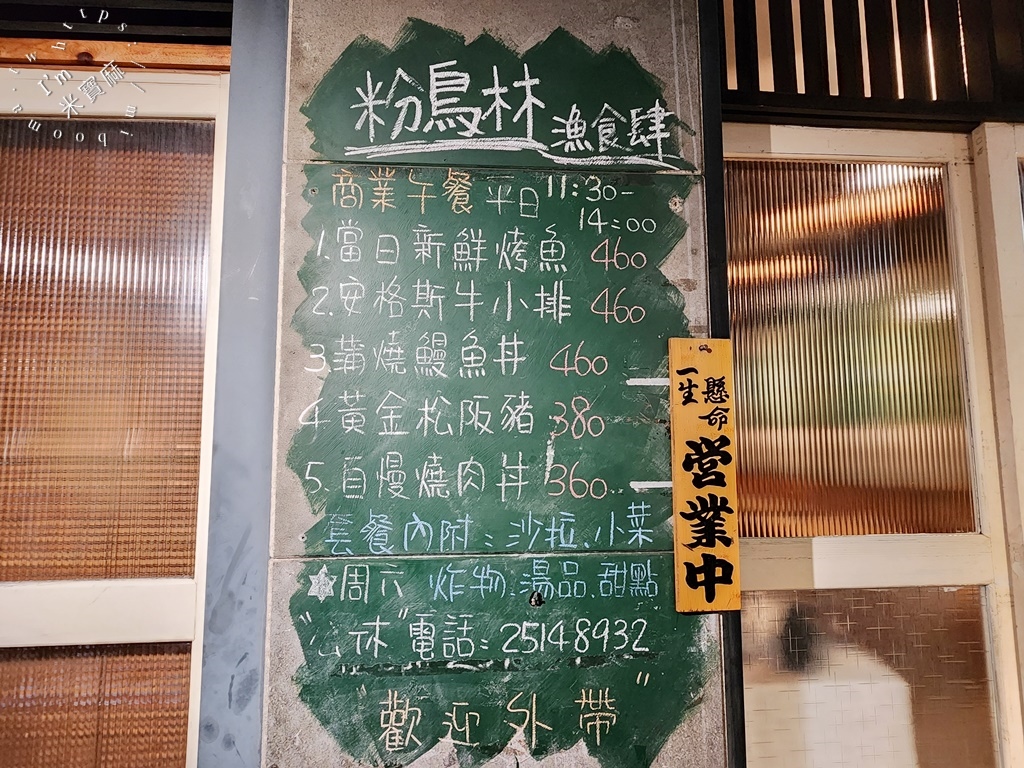 粉鳥林 漁食肆
商業午餐 平日 11:30-
14:00
1.當日新鮮烤魚 460
2.安格斯牛小排 460
3.蒲燒鰻魚丼 460
4.黃金松阪豬 380
5.自慢燒肉丼 360
套餐內附:沙拉.小菜
炸物.湯品.甜點
☆周六
"公休"
電話:25148932
"歡迎外帶"
一生懸命
営業中
I'm
米寶麻